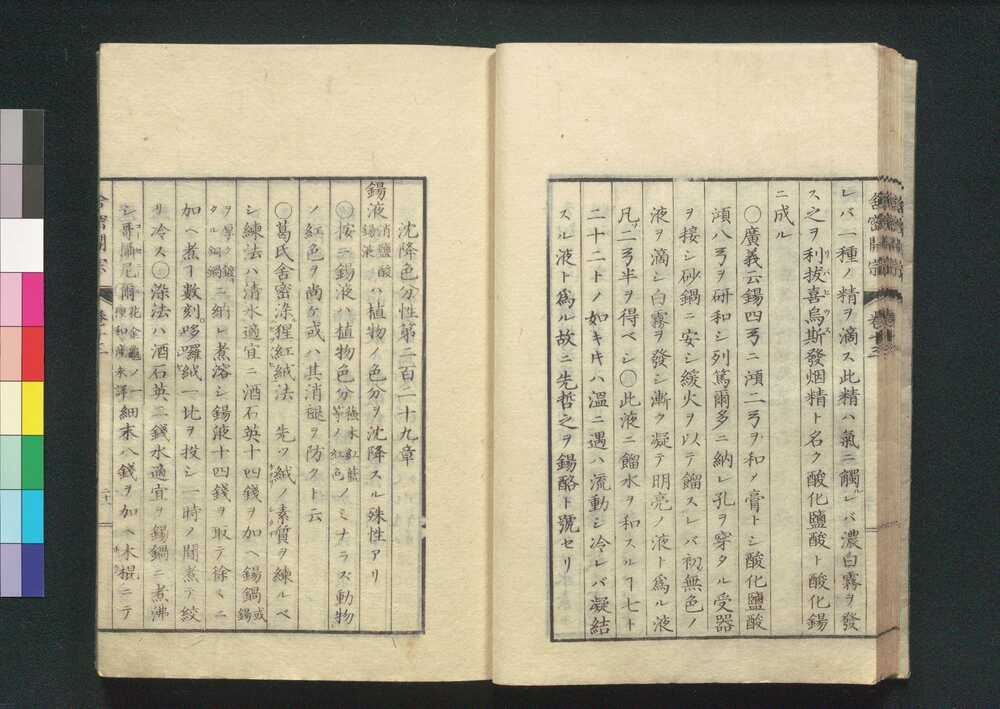 レバ一種ノ精ヲ滴ス此精ハ氣ニ觸レバ濃白霧ヲ發
ス之ヲ利拔喜烏斯發烟精ト名ク酸化鹽酸ト酸化錫
ニ成ル
〇廣義云錫四弓ニ澒二弓ヲ和〆膏トシ酸化鹽酸
澒八弓ヲ研和シ列篤爾多ニ納レ孔ヲ穿タル受器
ヲ接シ砂鍋ニ安シ緩火ヲ以テ餾スレバ初無色ノ
液ヲ滴シ白霧ヲ發シ漸ク凝テ明亮ノ液ト爲ル液
凡ソ二弓半ヲ得ベシ〇此液ニ餾水ヲ和スルヿ七ト
二十二トノ如キキハ溫ニ遇ハ流動シ冷レバ凝結
スル液ト爲ル故ニ先哲之ヲ錫酪ト號セリ
沈降色分性第二百二十九章
錫液消鹽酸錫液ハ植物ノ色分ヲ沈降スル殊性アリ
〇按ニ錫液ハ植物色分蘓木紅藍等ノ紅色ノミナラズ動物
ノ紅色ヲ尚ケ或ハ其消褪ヲ防クト云
〇葛氏舍密涤猩紅絨法 先ツ絨ノ素質ヲ練ルベ
シ練法ハ清水適宜ニ酒石英十四錢ヲ加ヘ錫鍋或錫
ヲ厚ク鍍タル銅鍋ニ納レ煮溶シ錫液十四錢ヲ取テ徐々ニ
加ヘ煮ヿ數刻哆囉絨一比ヲ投シ一時ノ間煮テ絞
リ冷ス〇涤法ハ酒石英二錢水適宜ヲ錫鍋ニ煮沸
シ哥攝尼爾細末八錢ヲ加ヘ木棍ニテ